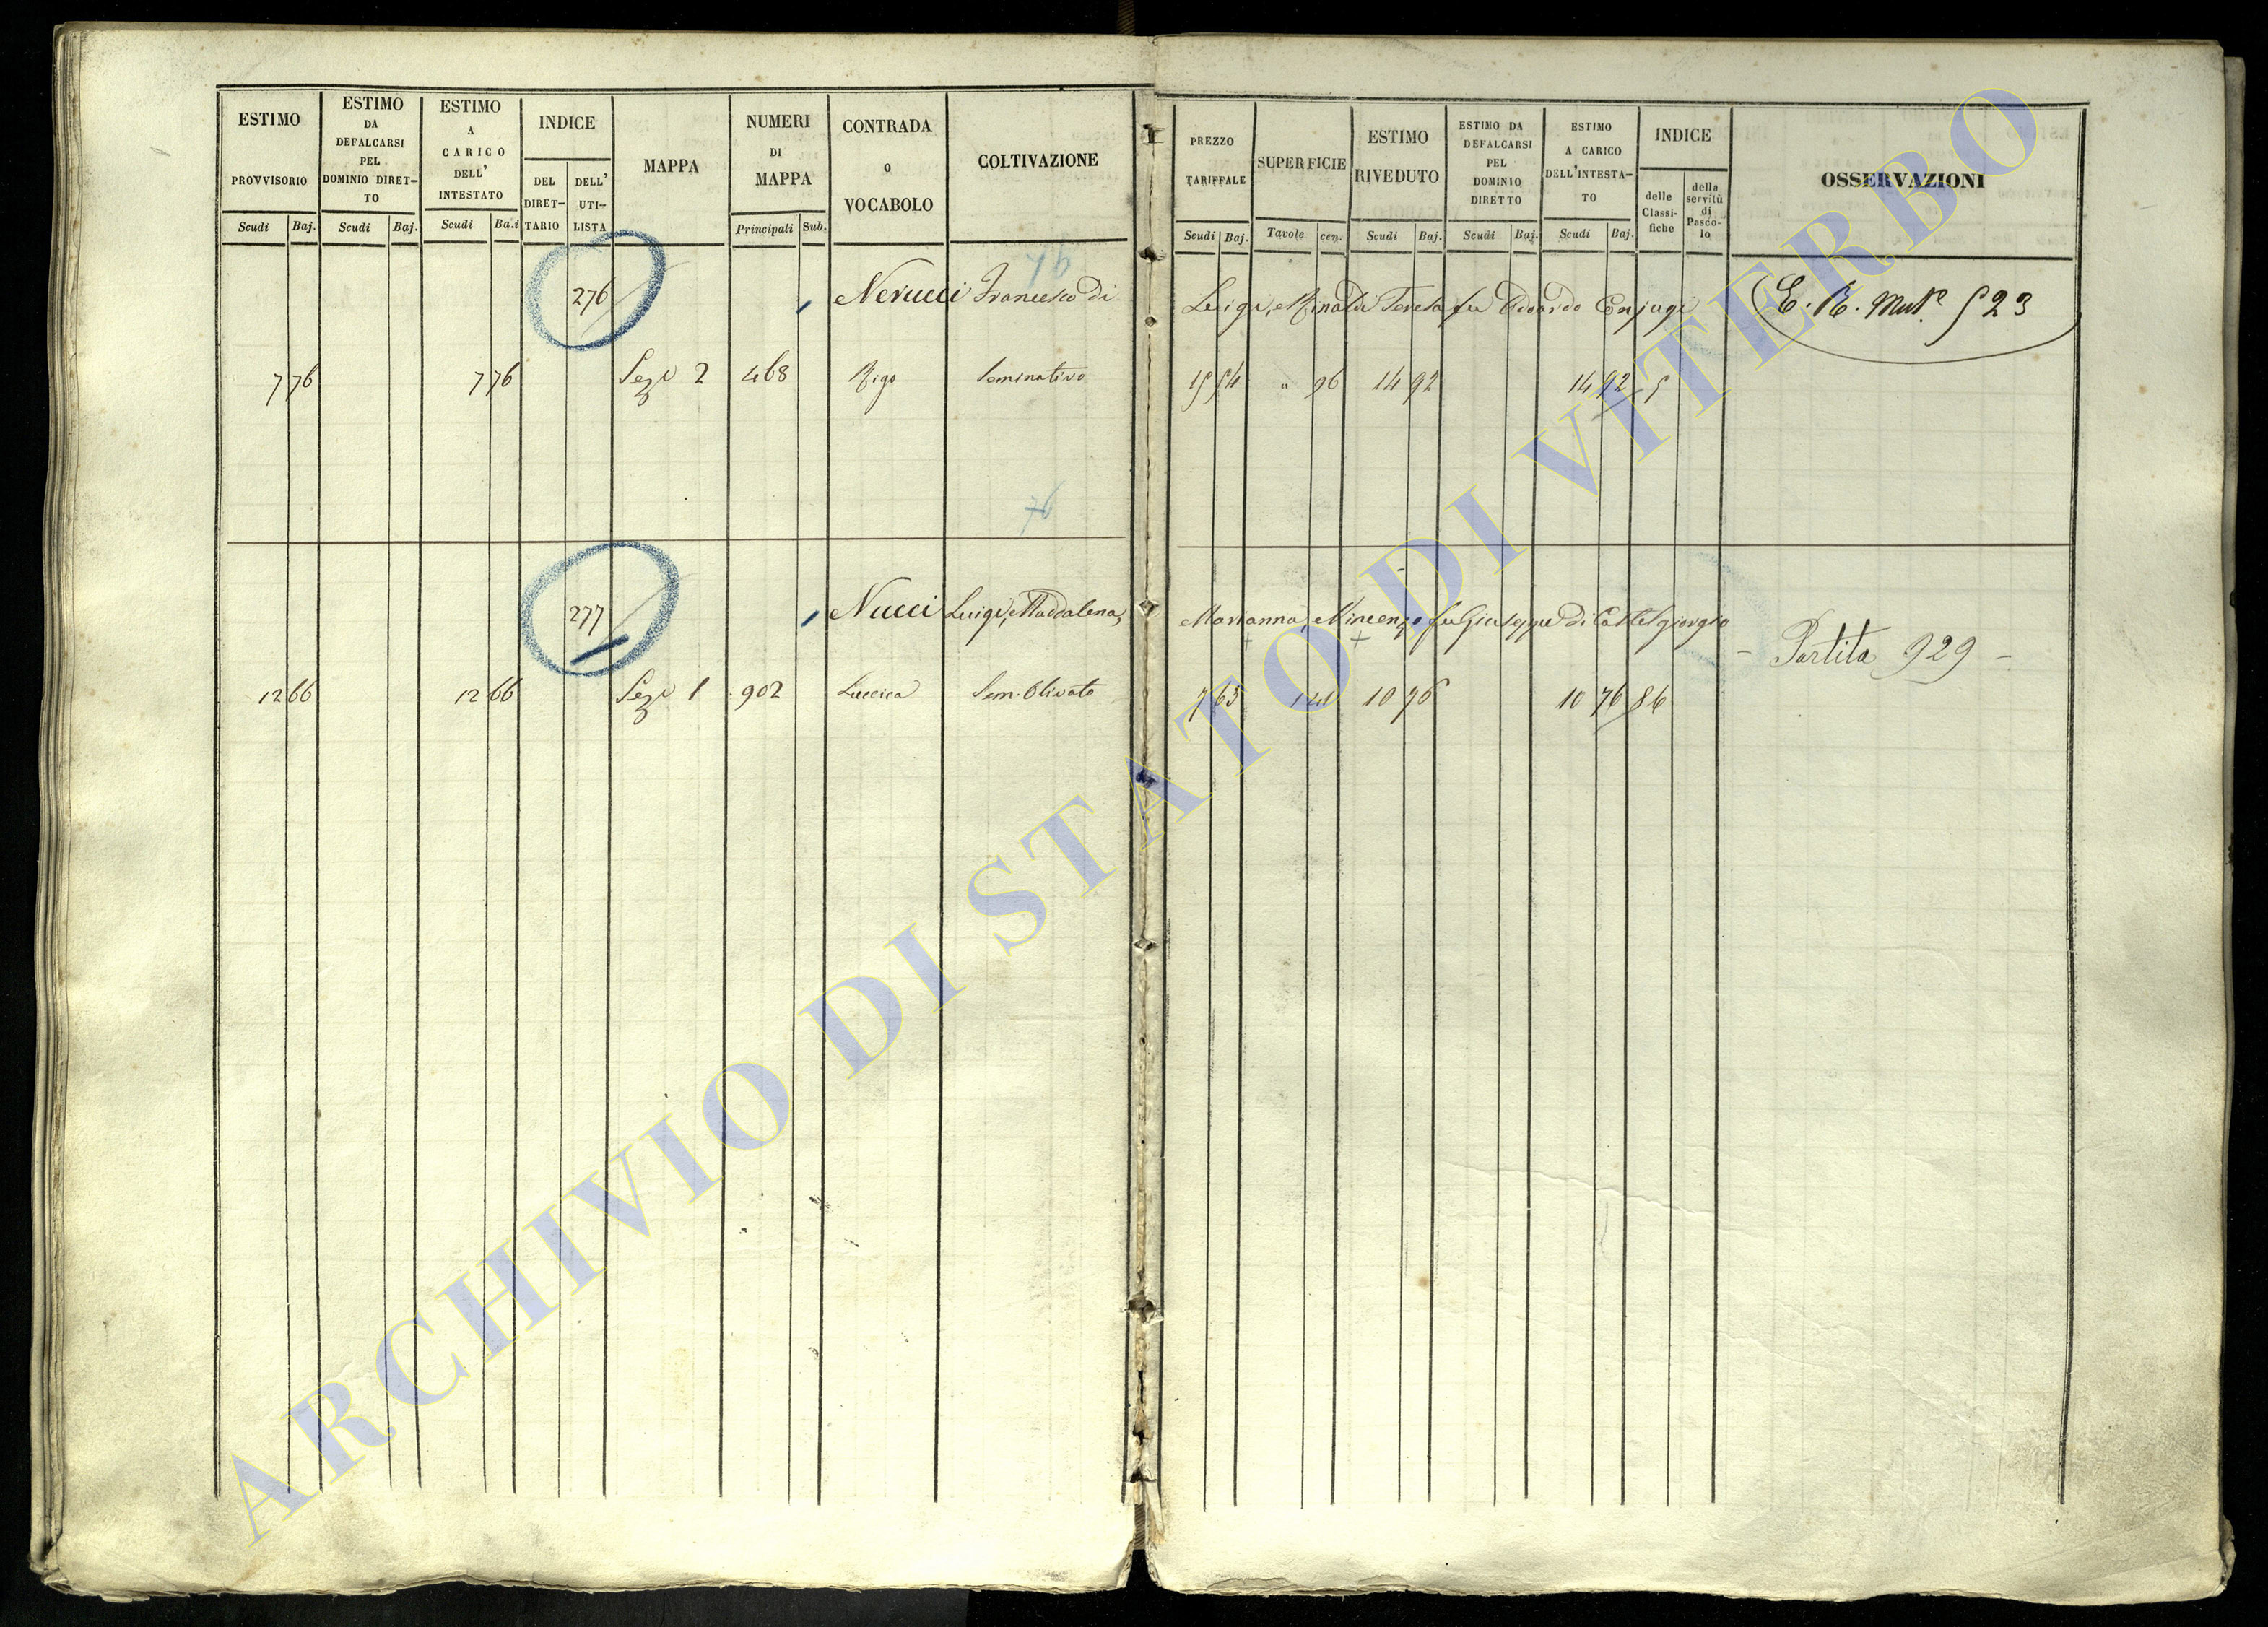 ESTIMO PROVVISORIO
Scudi Baj.
ESTIMO DA DEFALCARSI PEL DOMINIO DIRET-TO
Scudi Baj.
ESTIMO A CARICO DELL' INTESTATO
Scudi Ba.i
INDICE
DEL DIRET-TARIO
DELL' UTI-LISTA
MAPPA
NUMERI DI MAPPA
Principali Sub.
CONTRADA o VOCABOLO
COLTIVAZIONE
PREZZO TARIFFALE
Scudi Baj.
SUPERFICIE
Tavole cen.
ESTIMO RIVEDUTO
Scudi Baj.
ESTIMO DA DEFALCARSI PEL DOMINIO DIRETTO
Scudi Baj.
ESTIMO A CARICO DELL'INTESTA-TO
Scudi Baj.
INDICE
delle Classi-fiche
della servitù di Pasco-lo
OSSERVAZIONI
76
276 Nerucci Francesco di Luigi, Rinaldi Teresa fu Odoardo Conjugi
7 76 7 76 Sez.e 2 468 Rigo Seminativo 15 54 " 96 14 92 14 92 5
76
277 Nucci Luigi, Maddalena, Marianna, Vincenzo fu Giuseppe di Castelgiorgio
- Partita 929 -
12 66 12 66 Sez.e 1 902 Sem. Olivato 7 63 1 41 10 76 10 76 86
ARCHIVIO DI STATO DI VITERBO